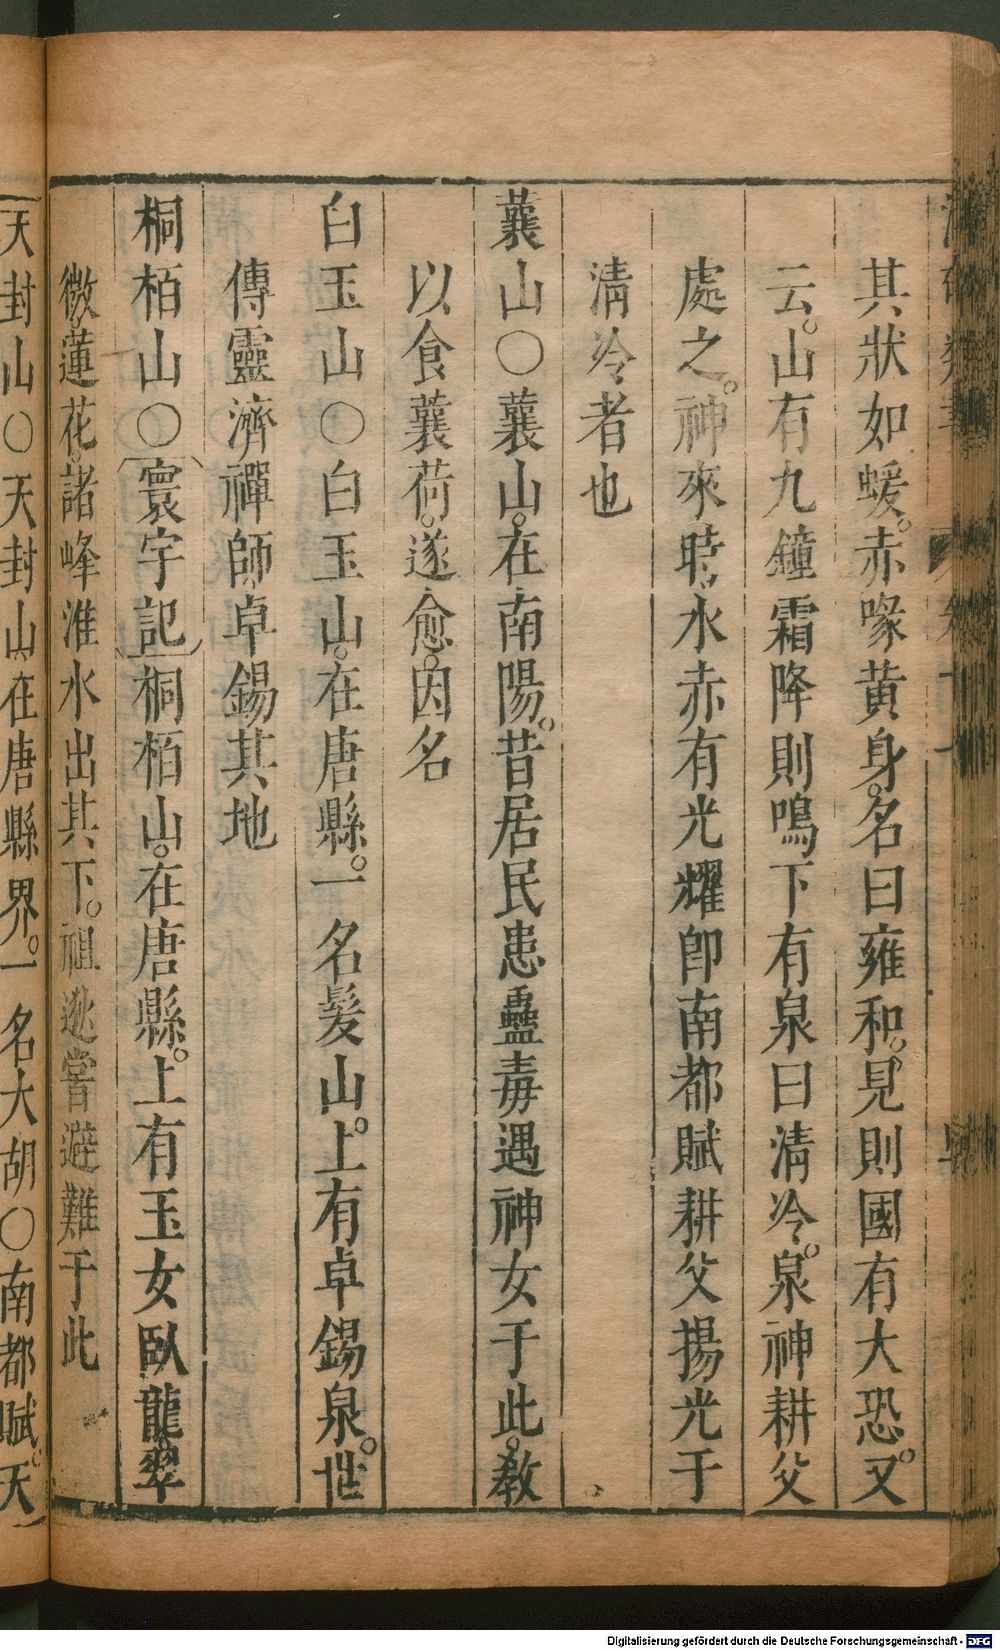 其狀如蝯赤喙黄身名曰雍和見則國有大恐又
云山有九鐘霜降則鳴下有泉曰淸冷泉神耕父
處之神來時水赤有光耀卽南都賦耕父揚光于
淸冷者也
蘘山○蘘山在南陽昔居民患蠱毒遇神女于此敎
以食蘘荷遂愈因名
白玉山○白玉山在唐縣一名髪山上有卓錫泉世
傳靈濟禪師卓錫其地
桐栢山○寰宇記桐栢山在唐縣上有玉女臥龍翠
微蓮花諸峰淮水出其下祖逖嘗避難于此
天封山○天封山在唐縣界一名大胡○南都賦天
Digitalisierung gefördert durch die Deutsche Forschungsgemeinschaft - DFG